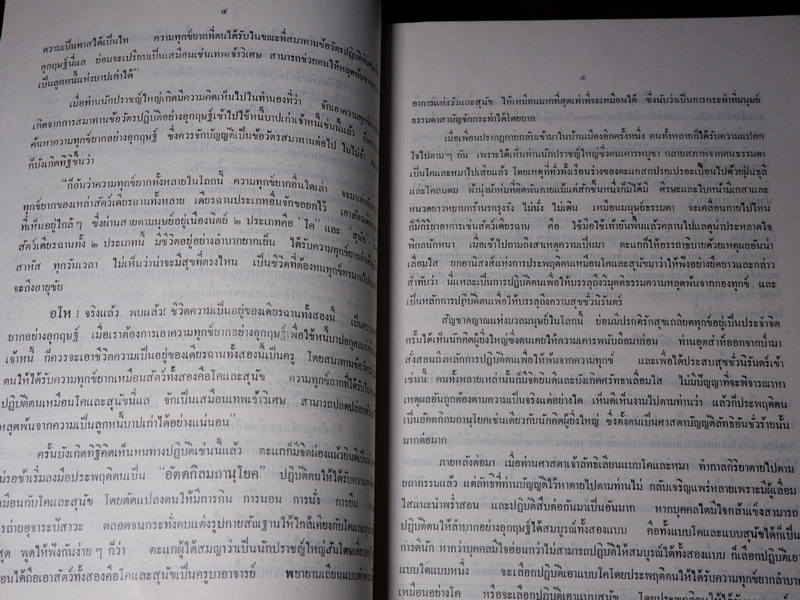 ๔
ความเป็นทาสได้เป็นไท ความทุกข์ยากที่ตนได้รับในขณะที่สมาทานข้อวัตรปฏิบัติ
อุกฤษฏ์นี่แล ย่อมจะเปรียบเป็นเสมือนเช่นเทพเจ้าวิเศษ สามารถช่วยตนให้หลุดพ้นจาก
เป็นลูกหนี้แห่งบาปเก่าได้"
เมื่อท่านนักปราชญ์ใหญ่เกิดมีความคิดเห็นไปในทำนองที่ว่า จักเอาความทุกข์
เกิดจากการสมาทานข้อวัตรปฏิบัติอย่างอุกฤษฏ์เข้าไปใช้หนี้บาปเก่าเจ้าหนี้เช่นนี้แล้ว
ค้นหาความทุกข์ยากอย่างอุกฤษฏ์ ซึ่งควรจักบัญญัติเป็นข้อวัตรสมาทานต่อไป ในไม่ช้า
ก็บังเกิดทิฐิขึ้นว่า
"ก็อันว่าความทุกข์ยากทั้งหลายในโลกนี้ ความทุกข์ยากอื่นใดเล่า จะมาเท่าเทียม
ทุกข์ยากของเหล่าสัตว์เดียรฉานทั้งหลาย เดียรฉานประเภทอื่นจักขอยกไว้ เอาสัตว์เดียรฉาน
ที่เห็นอยู่ใกล้ๆ ซึ่งผ่านสายตามนุษย์อยู่เนืองนิตย์ ๒ ประเภทคือ "โค" และ "สุนัข"
สัตว์เดียรฉานทั้ง ๒ ประเภทนี้ มีชีวิตอยู่อย่างลำบากยากเย็น ได้รับความทุกข์ยาก
สาหัส ทุกวันเวลา ไม่เห็นว่าน่าจะมีสุขที่ตรงไหน เป็นชีวิตที่ต้องทนทุกข์ทรมาน
จะถึงอายุขัย
อโห ! จริงแล้ว พบแล้ว! ชีวิตความเป็นอยู่ของเดียรฉานทั้งสองนี้ เป็นความ
ยากอย่างอุกฤษฏ์ เมื่อเราต้องการเอาความทุกข์ยากอย่างอุกฤษฏ์เพื่อใช้หนี้บาปอกุศล
เจ้าหนี้ ก็ควรจะเอาชีวิตความเป็นอยู่ของเดียรฉานทั้งสองนี้เป็นครู โดยสมาทานข้อวัตร
ตนให้ได้รับความทุกข์ยากเหมือนสัตว์ทั้งสองคือโคและสุนัข ความทุกข์ยากที่ได้รับ
ปฏิบัติตนเหมือนโคและสุนัขนี่แล จักเป็นเสมือนเทพเจ้าวิเศษ สามารถปลดปล่อย
หลุดพ้นจากความเป็นลูกหนี้บาปเก่าได้อย่างแน่นอน"
ครั้นบังเกิดทิฐิคิดเห็นหนทางปฏิบัติเช่นนี้แล้ว ตะแกก็มีจิตผ่องแผ้วยินดี
ไม่รอช้าเริ่มลงมือประพฤติตนเป็น "อัตตกิลมถานุโยค" ปฏิบัติตนให้ได้รับความ
เหมือนกับโคและสุนัข โดยดัดแปลงตนให้มีการกิน การนอน การนั่ง การยืน
การถ่ายอุจาระปัสาวะ ตลอดจนกระทั่งตบแต่งรูปกายสัณฐานให้ใกล้เคียงกับโคและสุนัข
สุด พูดให้ฟังกันง่ายๆ ก็ว่า ตะแกผู้ได้สมญาว่าเป็นนักปราชญ์ใหญ่สันโดษ
ก่อนได้ถือเอาสัตว์ทั้งสองคือโคและสุนัขเป็นครูบาอาจารย์ พยายามเลียนแบบ
๕
อาการแห่งวัวและสุนัข ให้เหมือนมากที่สุดเท่าที่จะเหมือนได้ ซึ่งนับว่าเป็นการกระทำที่มนุษย์
ธรรมดาสามัญจักกระทำได้โดยยาก
เมื่อเพื่อนปรากฏกายกลับเข้ามาในบ้านเมืองอีกครั้งหนึ่ง คนทั้งหลายก็ได้รับความแปลก
ใจไปตามๆ กัน เพราะได้เห็นท่านนักปราชญ์ใหญ่ซึ่งตนเคารพบูชา กลายสภาพจากคนธรรมดา
เป็นโคและหมาไปเสียแล้ว โดยเหตุที่ทั่วทั้งเรือนร่างของตะแกสกปรกเปรอะเปื้อนไปด้วยฝุ่นธุลี
และโคลนตม ผ้านุ่งผ้าห่มที่ติดพันกายแม้แต่สักชิ้นหนึ่งก็มิได้มี ศรษะและใบหน้ามีเกสาและ
หนวดยาวหยาบกร้านรกรุงรัง ไม่นั่ง ไม่เดิน เหมือนมนุษย์ธรรมดา จะเคลื่อนกายไปไหน
ก็มีกิริยาอาการเช่นสัตว์เดียรฉาน คือ ใช้มือใช้เท้ายันพื้นแล้วคลานไปแลดูน่าประหลาดใจ
พิกลนักหนา เมื่อเข้าไปถามถึงสาเหตุความเป็นมา ตะแกก็ให้อรรถาธิบายด้วยเหตุผลอันน่า
เลื่อมใส ยกอานิสงส์แห่งการประพฤติตนเหมือนโคและสุนัขมาว่าให้ฟังอย่างยืดยาวและกล่าว
สำทับว่า นี่แหละเป็นการปฏิบัติตนเพื่อให้บรรลุถึงวิมุตติธรรมความหลุดพ้นจากกองทุกข์ และ
เป็นหลักการปฏิบัติตนเพื่อให้บรรลุถึงความสุขชั่วนิรันดร
สัญชาตญาณแห่งมวลมนุษย์ในโลกนี้ ย่อมมีปรกติรักสุขเกลียดทุกข์อยู่เป็นประจำจิต
ครั้นได้เห็นนักคิดผู้ยิ่งใหญ่ซึ่งตนเคยให้ความเคารพนับถือมาก่อน ท่านอุตส่าห์ออกจากป่ามา
สั่งสอนถึงหลักการปฏิบัติเพื่อให้พ้นจากความทุกข์ และเพื่อได้ประสบสุขชั่วนิรันดร์เข้า
เช่นนี้ คนทั้งหลายเหล่านั้นก็มีจิตยินดีและบังเกิดศรัทธาเลื่อมใส ไม่มีปัญญาที่จะพิจารณาหา
เหตุผลอันถูกต้องตามความเป็นจริงแต่อย่างใด เห็นดีเห็นงามไปตามท่านว่า แล้วก็ประพฤติตน
เป็นอัตตกิลมถานุโยคเช่นเดียวกับนักคิดผู้ยิ่งใหญ่ ซึ่งตั้งตนเป็นศาสดาบัญญัติลัทธิอันชั่วร้ายนั้น
มากต่อมาก
ภายหลังต่อมา เมื่อท่านศาสดาเจ้าลัทธิเลียนแบบโคและหมา ทำกาลกิริยาตายไปตาม
ยถากรรมแล้ว แต่ลัทธิที่ท่านบัญญัติไว้หาตายไปตามท่านไม่ กลับเจริญแพร่หลายเพราะมีผู้เลื่อม
ใสแนะนำพร่ำสอน และปฏิบัติสืบต่อกันมาเป็นอันมาก หากบุคคลใดมีใจกล้าแข็งสามารถ
ปฏิบัติตนให้ลำบากอย่างอุกฤษฏ์ได้สมบูรณ์ทั้งสองแบบ คือทั้งแบบโคและแบบสุนัขได้ก็เป็น
การดีนัก หากว่าบุคคลมีใจอ่อนกว่าไม่สามารถปฏิบัติให้สมบูรณ์ได้ทั้งสองแบบ ก็เลือกปฏิบัติเอา
แบบใดแบบหนึ่ง จะเลือกปฏิบัติเอาแบบโคโดยประพฤติตนให้ได้รับความทุกข์ยากลำบาก
เหมือนอย่างโค หรือจะเลือกปฏิบัติเอาแบบสุนัข โดยประพฤติตนให้ได้รับ